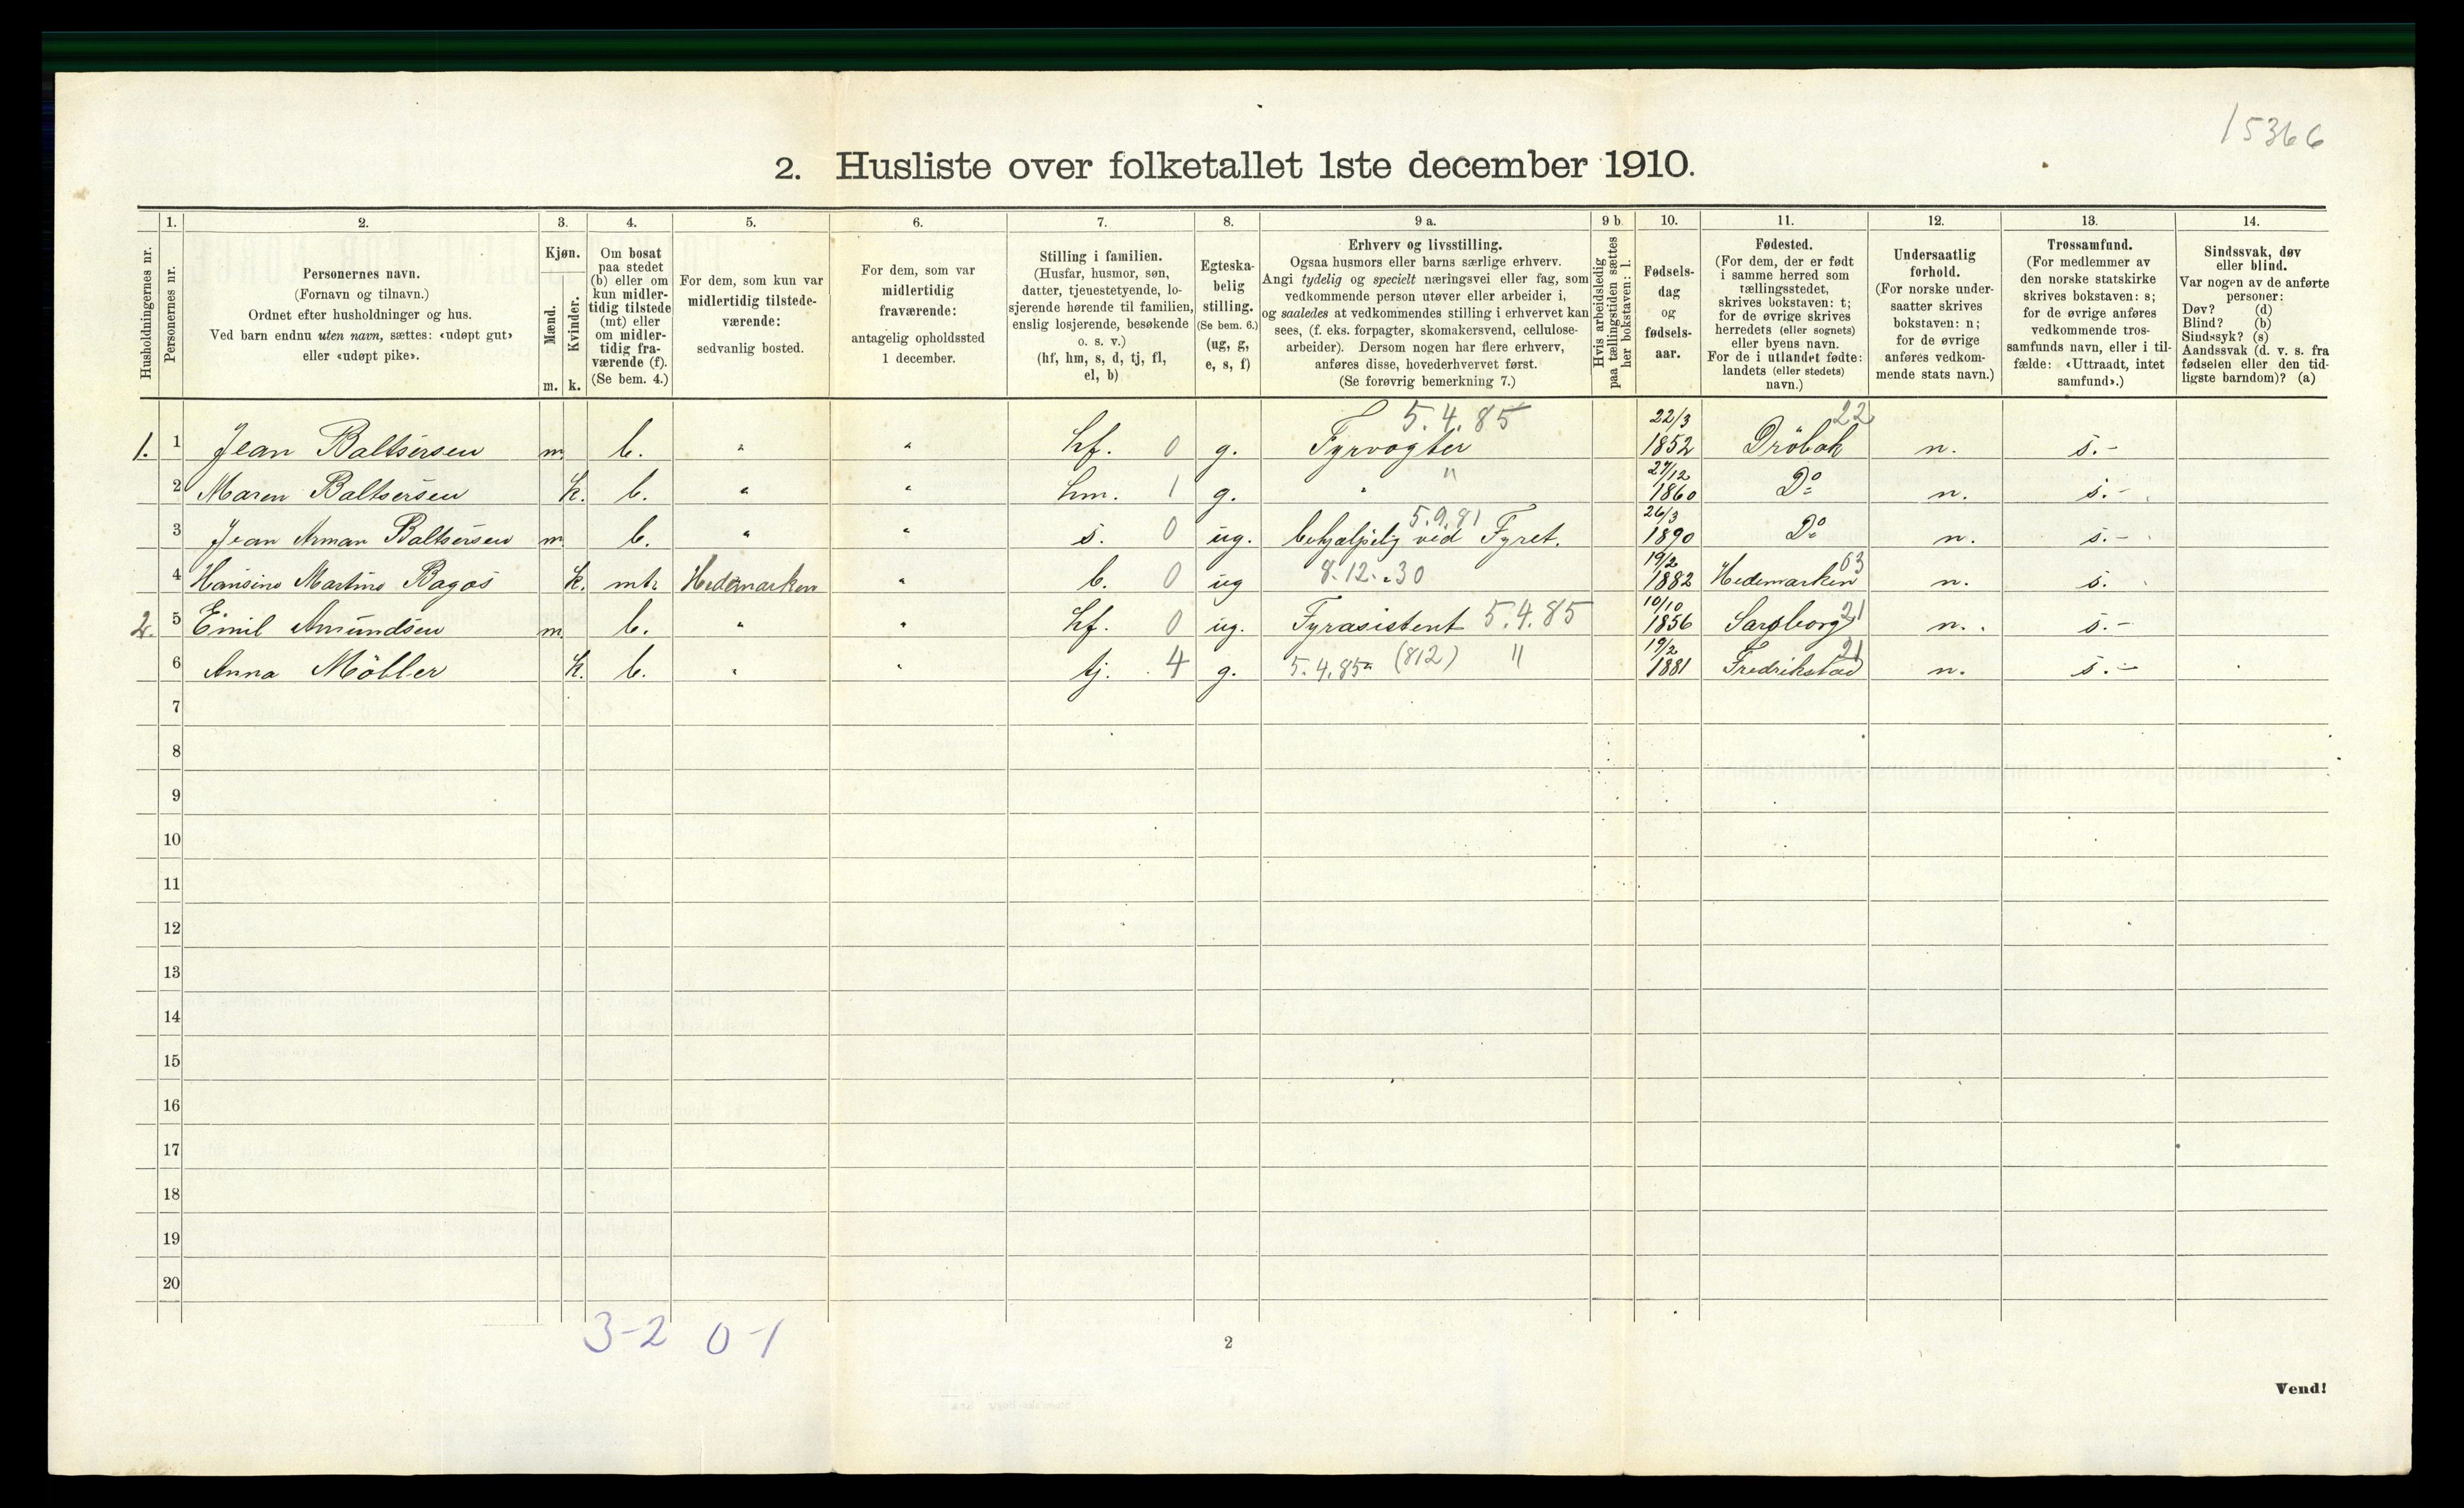 15366
2. Husliste over folketallet 1ste december 1910.
Husholdningernes nr.
1.
Personernes nr.
2.
Personernes navn.
(Fornavn og tilnavn.)
Ordnet efter husholdninger og hus.
Ved barn endnu uten navn, sættes: «udøpt gut»
eller «udøpt pike».
3.
Kjøn.
Mænd.
Kvinder.
m. k.
4.
Om bosat
paa stedet
(b) eller om
kun midler-
tidig tilstede
(mt) eller
om midler-
tidig fra-
værende (f).
(Se bem. 4.)
5.
For dem, som kun var
midlertidig tilstede-
værende:
sedvanlig bosted.
6.
For dem, som var
midlertidig
fraværende:
antagelig opholdssted
1 december.
7.
Stilling i familien.
(Husfar, husmor, søn,
datter, tjenestetyende, lo-
sjerende hørende til familien,
enslig losjerende, besøkende
o. s. v.)
(hf, hm, s, d, tj, fl,
el, b)
8.
Egteska-
belig
stilling.
(Se bem. 6.)
(ug, g,
e, s, f)
9 a.
Erhverv og livsstilling.
Ogsaa husmors eller barns særlige erhverv.
Angi tydelig og specielt næringsvei eller fag, som
vedkommende person utøver eller arbeider i,
og saaledes at vedkommendes stilling i erhvervet kan
sees, (f. eks. forpagter, skomakersvend, cellulose-
arbeider). Dersom nogen har flere erhverv,
anføres disse, hovederhvervet først.
(Se forøvrig bemerkning 7.)
9 b.
Hvis arbeidsledig
paa tællingstiden sættes
her bokstaven: l.
10.
Fødsels-
dag
og
fødsels-
aar.
11.
Fødested.
(For dem, der er født
i samme herred som
tællingsstedet,
skrives bokstaven: t;
for de øvrige skrives
herredets (eller sognets)
eller byens navn.
For de i utlandet fødte:
landets (eller stedets)
navn.)
12.
Undersaatlig
forhold.
(For norske under-
saatter skrives
bokstaven: n;
for de øvrige
anføres vedkom-
mende stats navn.)
13.
Trossamfund.
(For medlemmer av
den norske statskirke
skrives bokstaven: s;
for de øvrige anføres
vedkommende tros-
samfunds navn, eller i til-
fælde: «Uttraadt, intet
samfund».)
14.
Sindssvak, døv
eller blind.
Var nogen av de anførte
personer:
Døv? (d)
Blind? (b)
Sindssyk? (s)
Aandssvak (d. v. s. fra
fødselen eller den tid-
ligste barndom)? (a)
5.4.85 22/3 22
1. 1 Jean Baltsersen m b. " " hf. 0 g. Fyrvogter 1852 Dröbak n. s.-
27/12
2 Maren Baltsersen k. b. " " hm. 1 g. " " 1860 Do n. s.-
5.9.81 26/3
3 Jean Arman Baltsersen m b. " " s. 0 ug. behjælpelig ved Fyret. 1890 Do n. s.-
19/2 03
4 Hansine Martine Bagås k. mt. Hedemarken " b. 0 ug 8.12.30 1882 Hedemarken n. s.
10/10
2. 5 Emil Amundsen m b. " " hf. 0 ug. Fyrasistent 5.4.85 1856 Sarpborg 21 n. s.-
19/2 21
6 Anna Möller k. b. " " tj. 4 g. 5.4.85 (812) " 1881 Fredrikstad n. s.-
7
8
9
10
11
12
13
14
15
16
17
18
19
20
3-2 0-1
2
Vend!